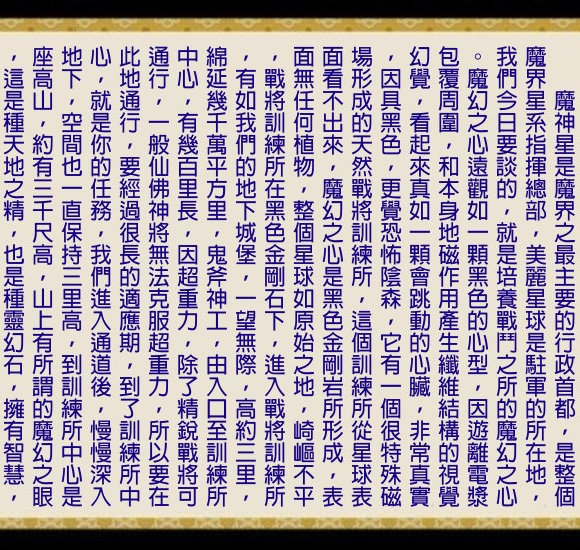 魔神星是魔界之最主要的行政首都，是整個
魔界星系指揮總部，美麗星球是駐軍的所在地，
我們今日要談的，就是培養戰鬥之所的魔幻之心
。魔幻之心遠觀如一顆黑色的心型，因游離電漿
包覆周圍，和本身地磁作用產生纖維結構的視覺
幻覺，看起來真如一顆會跳動的心臟，非常真實
，因具黑色，更覺恐怖陰森，它有一個很特殊磁
場形成的天然戰將訓練所，這個訓練所從星球表
面看不出來，魔幻之心是黑色金剛岩所形成，表
面無任何植物，整個星球如原始之地，崎嶇不平
，戰將訓練所在黑色金剛石下，進入戰將訓練所
，有如我們的地下城堡，一望無際，高約三里，
綿延幾千萬平方里，鬼斧神工，由入口至訓練所
中心，有幾百里長，因超重力，除了精銳戰將可
通行，一般仙佛神將無法克服超重力，所以要在
此地通行，要經過很長的適應期，到了訓練所中
心，就是你的任務，我們進入通道後，慢慢深入
地下，空間也一直保持三里高，到訓練所中心是
座高山，約有三千尺高，山上有所謂的魔幻之眼
，這是種天地之精，也是種靈幻石，擁有智慧，